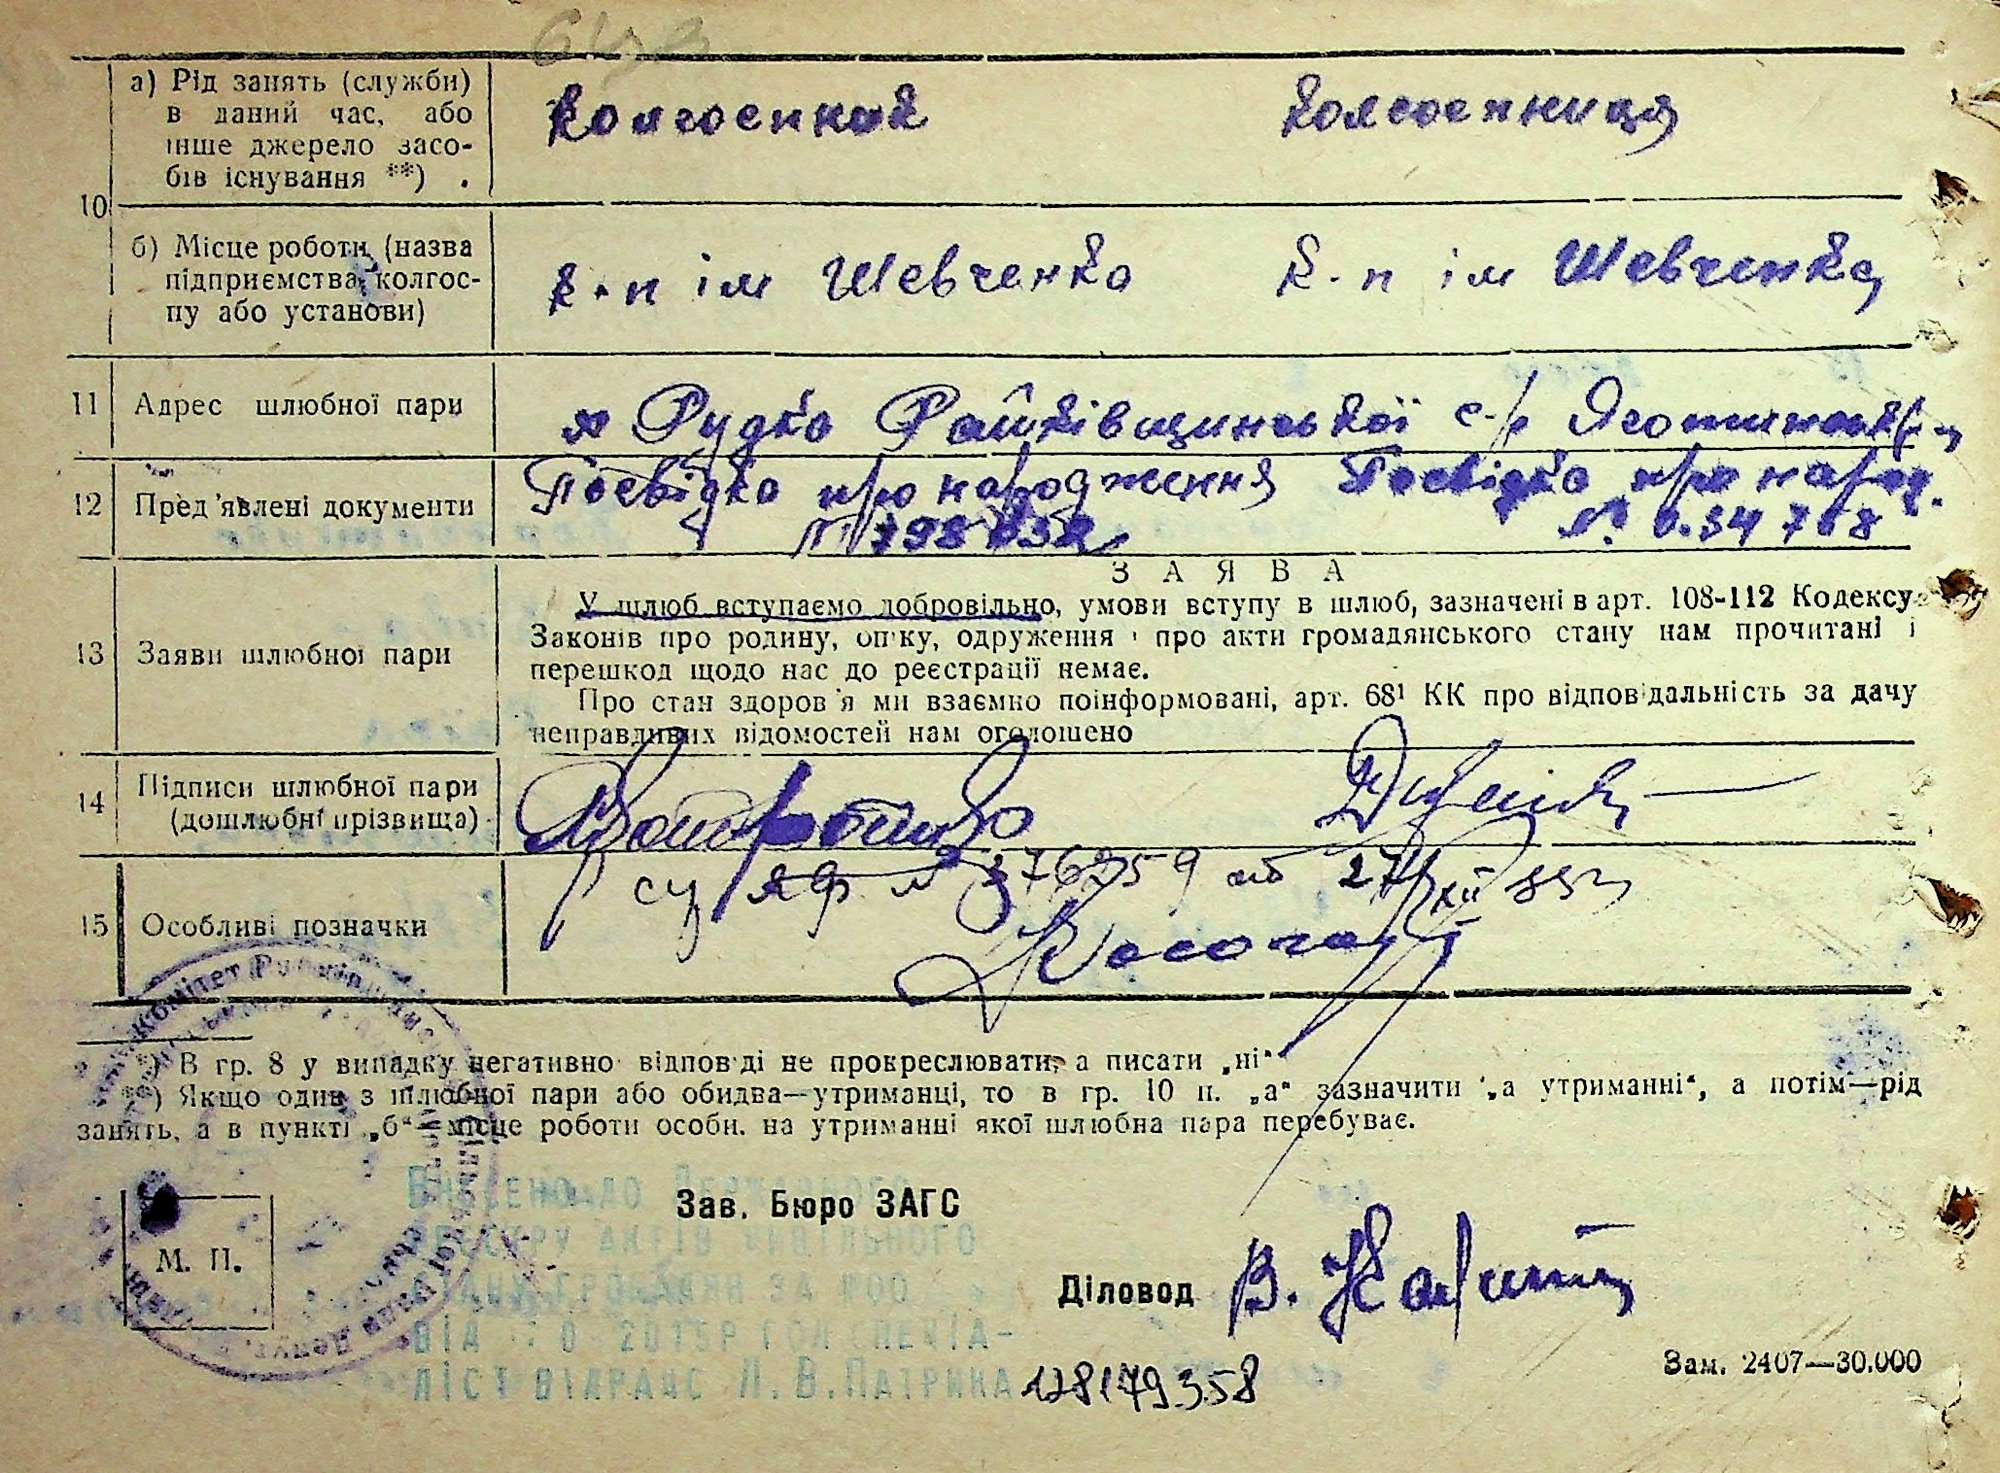 а) Рід занять (служби)
в даний час, або
інше джерело засо-
бів існування **) .
колгоспник колгоспниця
10
б) Місце роботи (назва
підприємства, колгос-
пу або установи)
к-п ім Шевченка к-п ім Шевченка
11 Адрес шлюбної пари
х Рудка Райківщинської с/р
12 Пред'явлені документи
Посвідка про народження Посвідка про народ.
13 Заяви шлюбної пари
ЗАЯВА
У шлюб вступаємо добровільно, умови вступу в шлюб, зазначені в арт. 108-112 Кодексу
Законів про родину, опіку, одруження і про акти громадянського стану нам прочитані і
перешкод щодо нас до реєстрації немає.
Про стан здоров'я ми взаємно поінформовані, арт. 68¹ КК про відповідальність за дачу
неправдивих відомостей нам оголошено
14 Підписи шлюбної пари
(дошлюбні прізвища)
15 Особливі позначки
*) В гр. 8 у випадку негативно відповіді не прокреслювати, а писати „ні“
**) Якщо один з шлюбної пари або обидва—утриманці, то в гр. 10 п. „а“ зазначити „а утриманні“, а потім—рід
занять, а в пункті „б“—місце роботи особи, на утриманні якої шлюбна пара перебуває.
Внесено до Державного
реєстру актів цивільного
стану громадян за №00
128179358
Л. В. Патрика
Зав. Бюро ЗАГС
М. П.
Діловод
Зам. 2407—30.000